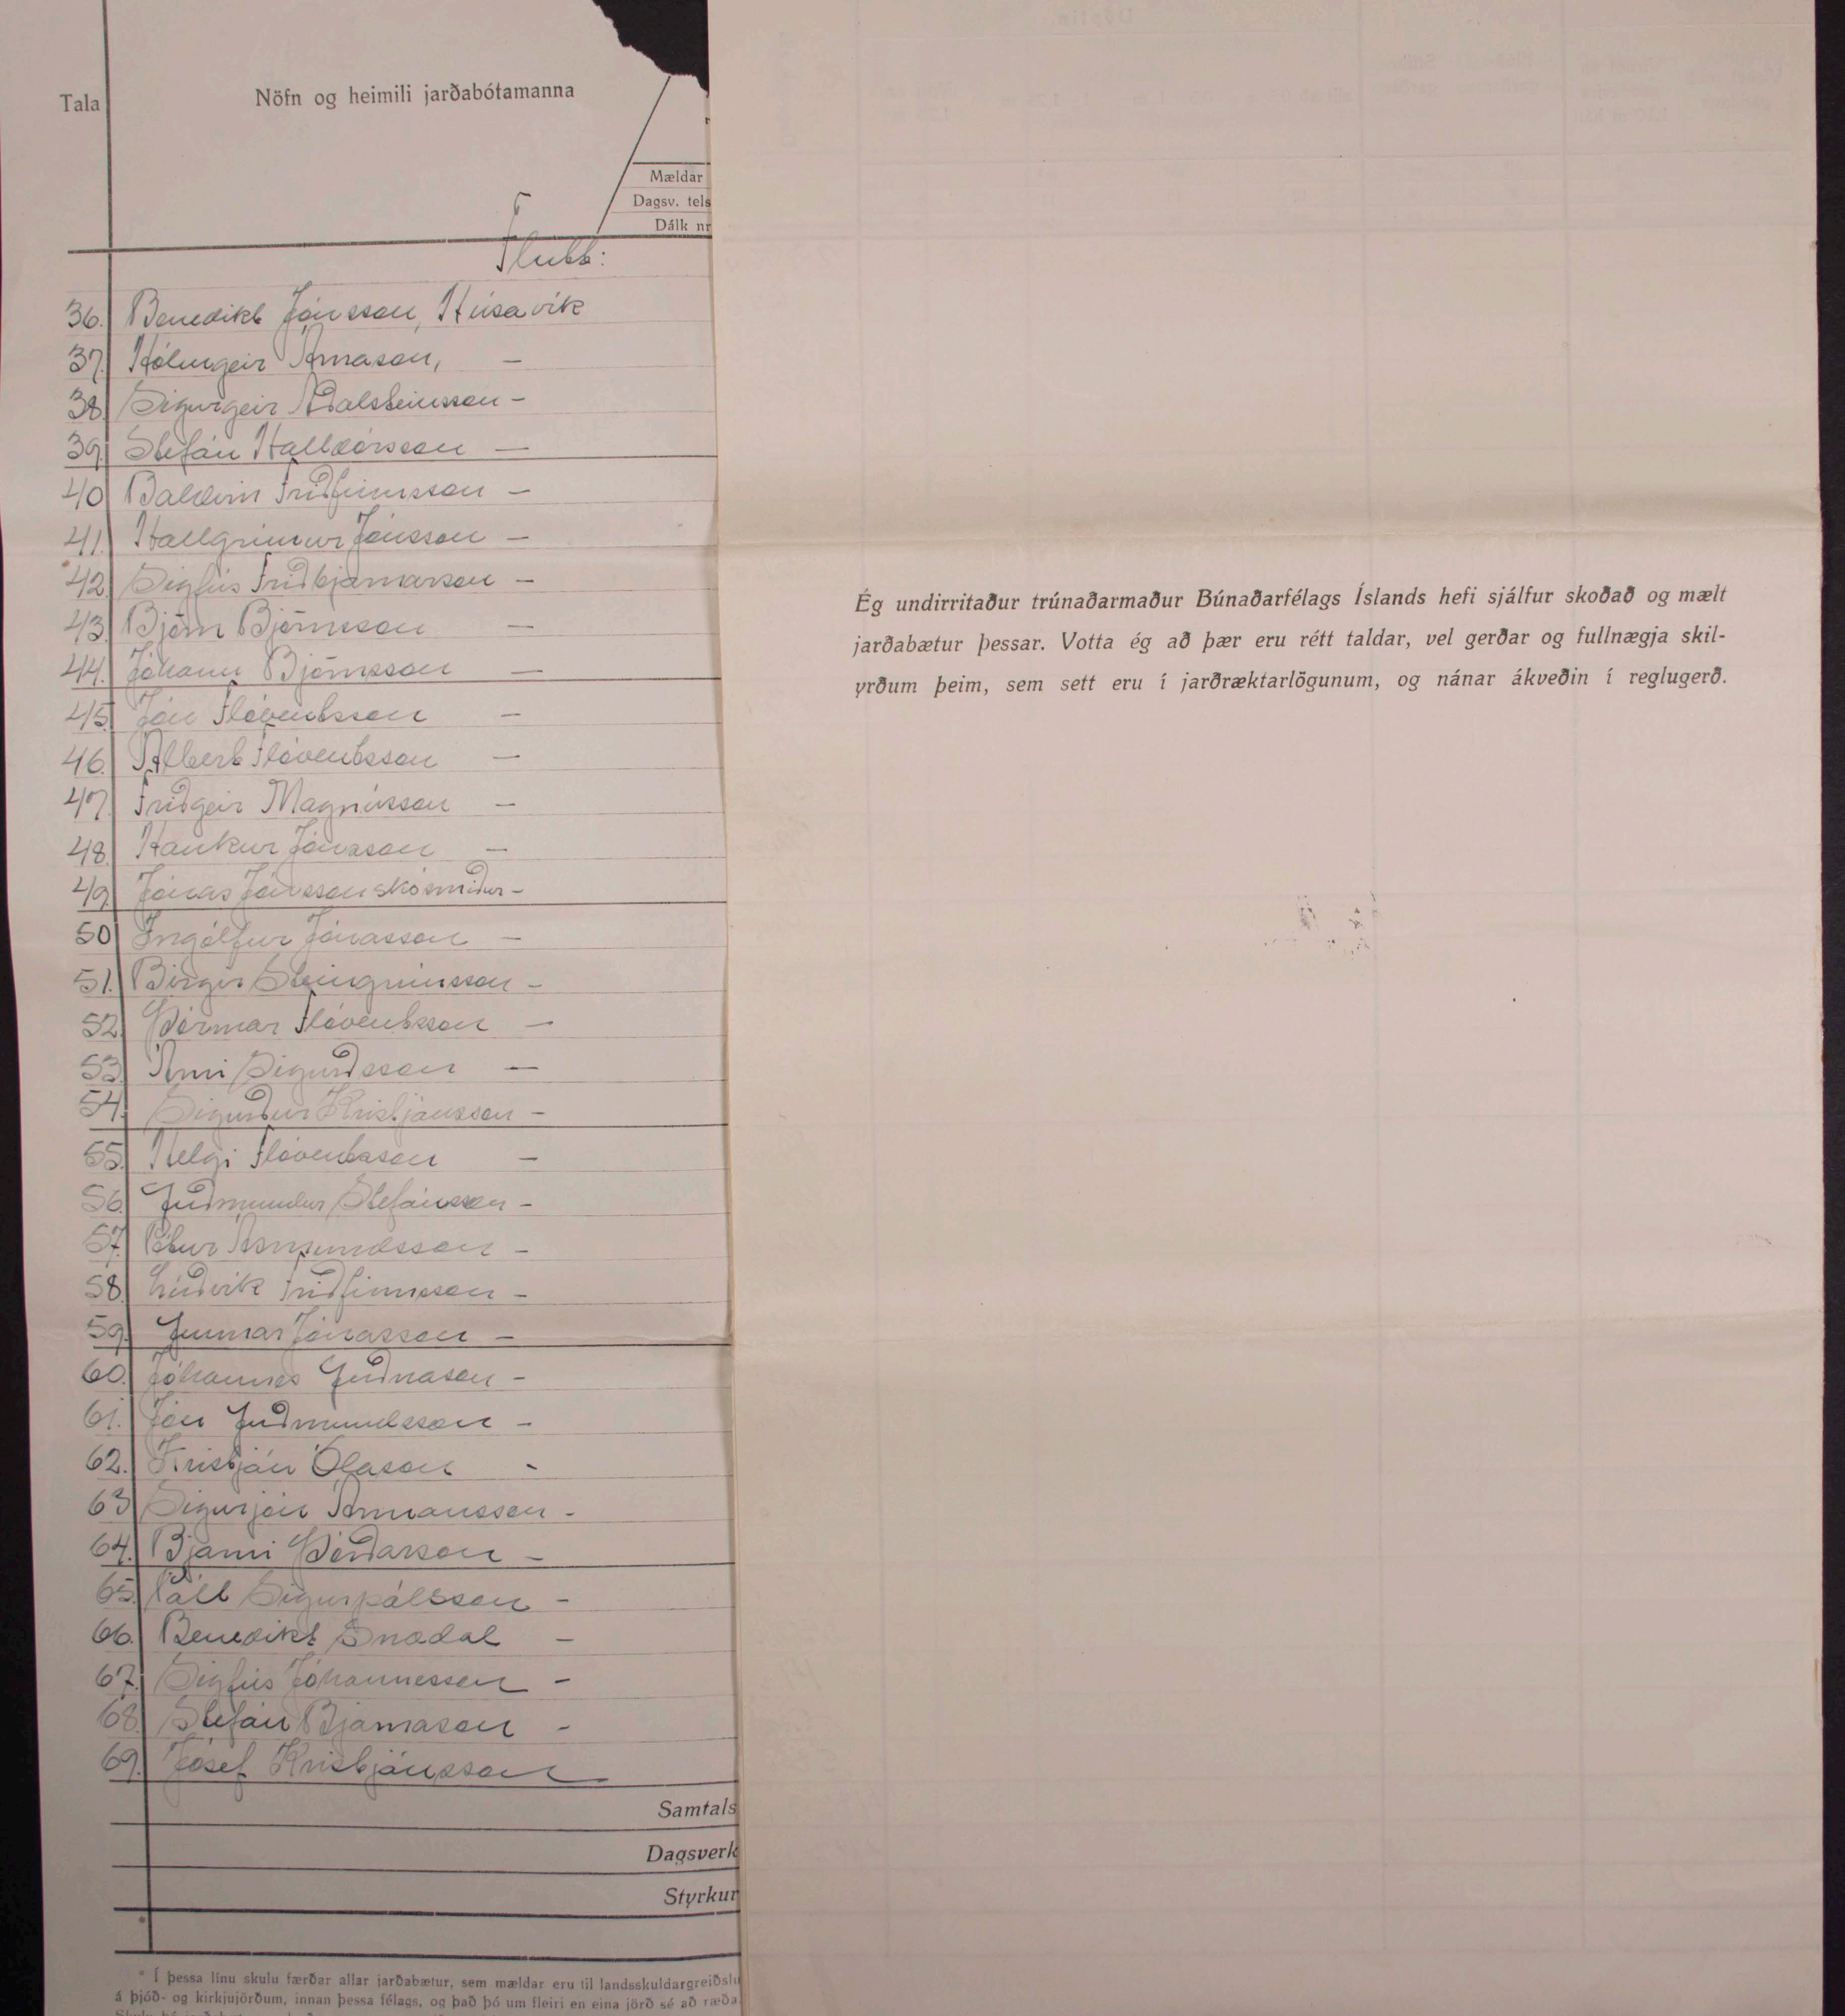 Tala
Nöfn og heimili jarðabótamanna
Mældar
Dagsv. tels
Dálk nr
Flutt:
36. Benedikt Jónsson, Húsavík
37. Hólmgeir Árnason, —
38. Sigurgeir Aðalsteinsson —
39. Stefán Halldórsson —
40 Baldvin Friðfinnsson —
41. Hallgrímur Jónsson —
42. Sigfús Friðbjarnarson —
43. Björn Björnsson —
44. Jóhann Björnsson —
45. Jón Flóventsson —
46. Albert Flóventsson —
47. Friðgeir Magnússon —
48. Haukur Jónsson —
49. Jónas Jónsson skósmiður —
50 Ingólfur Jónasson —
51. Birgir Steingrímsson —
52. Þórmar Flóventsson —
53. Árni Sigurðsson —
54. Sigurður Kristjánsson —
55. Helgi Flóventsson —
56. Guðmundur Stefánsson —
57. Pétur Ásmundsson —
58. Lúðvík Friðfinnsson —
59. Gunnar Jónasson —
60. Jóhannes Guðnason —
61. Jón Guðmundsson —
62. Kristján Ólason -
63 Sigurjón Ármannsson -
64. Bjarni Þórðarson —
65. Páll Sigurpálsson —
66. Benedikt Snædal —
67. Sigfús Jóhannesson —
68. Stefán Bjarnason -
69. Jósef Kristjánsson
Samtals
Dagsverk
Styrkur
* Í þessa línu skulu færðar allar jarðabætur, sem mældar eru til landsskuldargreiðslu
á þjóð- og kirkjujörðum, innan þessa félags, og það þó um fleiri en eina jörð sé að ræða.
Ég undirritaður trúnaðarmaður Búnaðarfélags Íslands hefi sjálfur skoðað og mælt
jarðabætur þessar. Votta ég að þær eru rétt taldar, vel gerðar og fullnægja skil-
yrðum þeim, sem sett eru í jarðræktarlögunum, og nánar ákveðin í reglugerð.